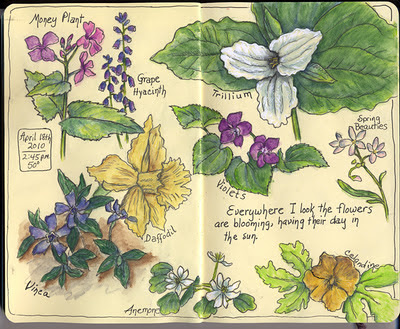 Money Plant
Grape
Hyacinth
April 18th
2010
2:45pm
50°
Daffodil
Vinca
Anemone
Trillium
Violets
Spring
Beauties
Everywhere I look the flowers
are blooming, having their day in
the sun.
Celandine